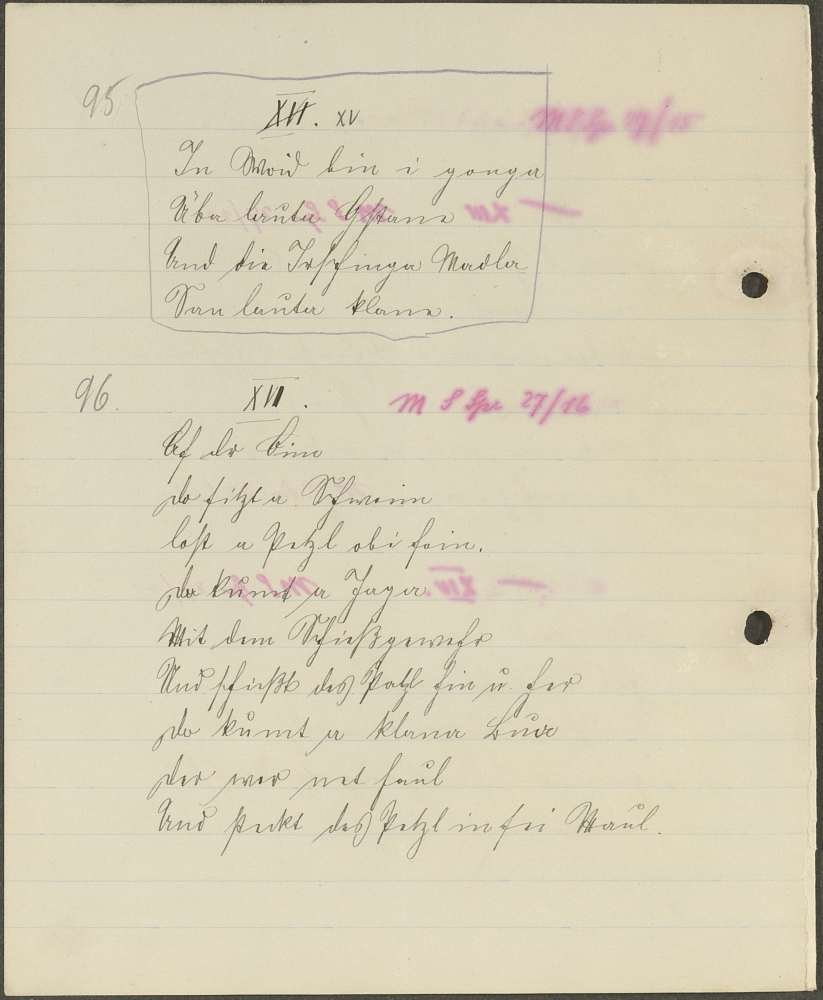 95
XVI. XV
M S Sp. 27/15
In Woid bin i gonga
Üba lauta Gstane
Und die Irschinga Madla
San lauta klane.
96.
XVI.
M S Sp. 27/16
Af da Bim
do sitzt a Schweim
lost a Petzl obi foin.
Da kumt a Jaga
Mit dem Schießgewehr
Und schießt des Patzl hin u. her
Do kumt a klana Bua
der war net faul
Und steckt des Petzl in sei Maul.